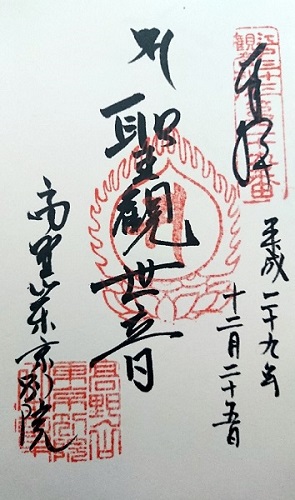 奉拝
平成二十九年
十二月二十五日
聖観世音
高野山東京別院
高野山
東京別院